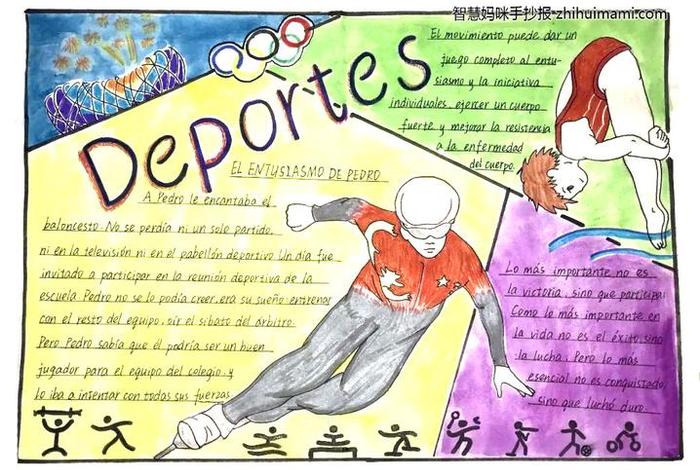 智慧妈咪手抄报·zhihuimami.com
Deportes
El movimiento puede dar un
juego completo al entu-
siasmo y la iniciativa
individuales, ejercer un cuerpo
fuerte y mejorar la resistencia
a la enfermedad
del cuerpo.
EL ENTUSIASMO DE PEDRO
A Pedro le encantaba el
baloncesto. No se perdía ni un solo partido,
ni en la televisión ni en el pabellón deportivo. Un día fue
invitado a participar en la reunión deportiva de la
escuela. Pedro no se lo podía creer, era su sueño entrenar
con el resto del equipo, oír el sibato del árbitro.
Pero Pedro sabía que él podría ser un buen
jugador para el equipo del colegio, y
lo iba a intentar con todas sus fuerzas.
Lo más importante no es
la victoria, sino que participar
Como lo más importante en
la vida no es el éxito, sino
la lucha, Pero lo más
esencial no es conquistado,
sino que luchó duro.